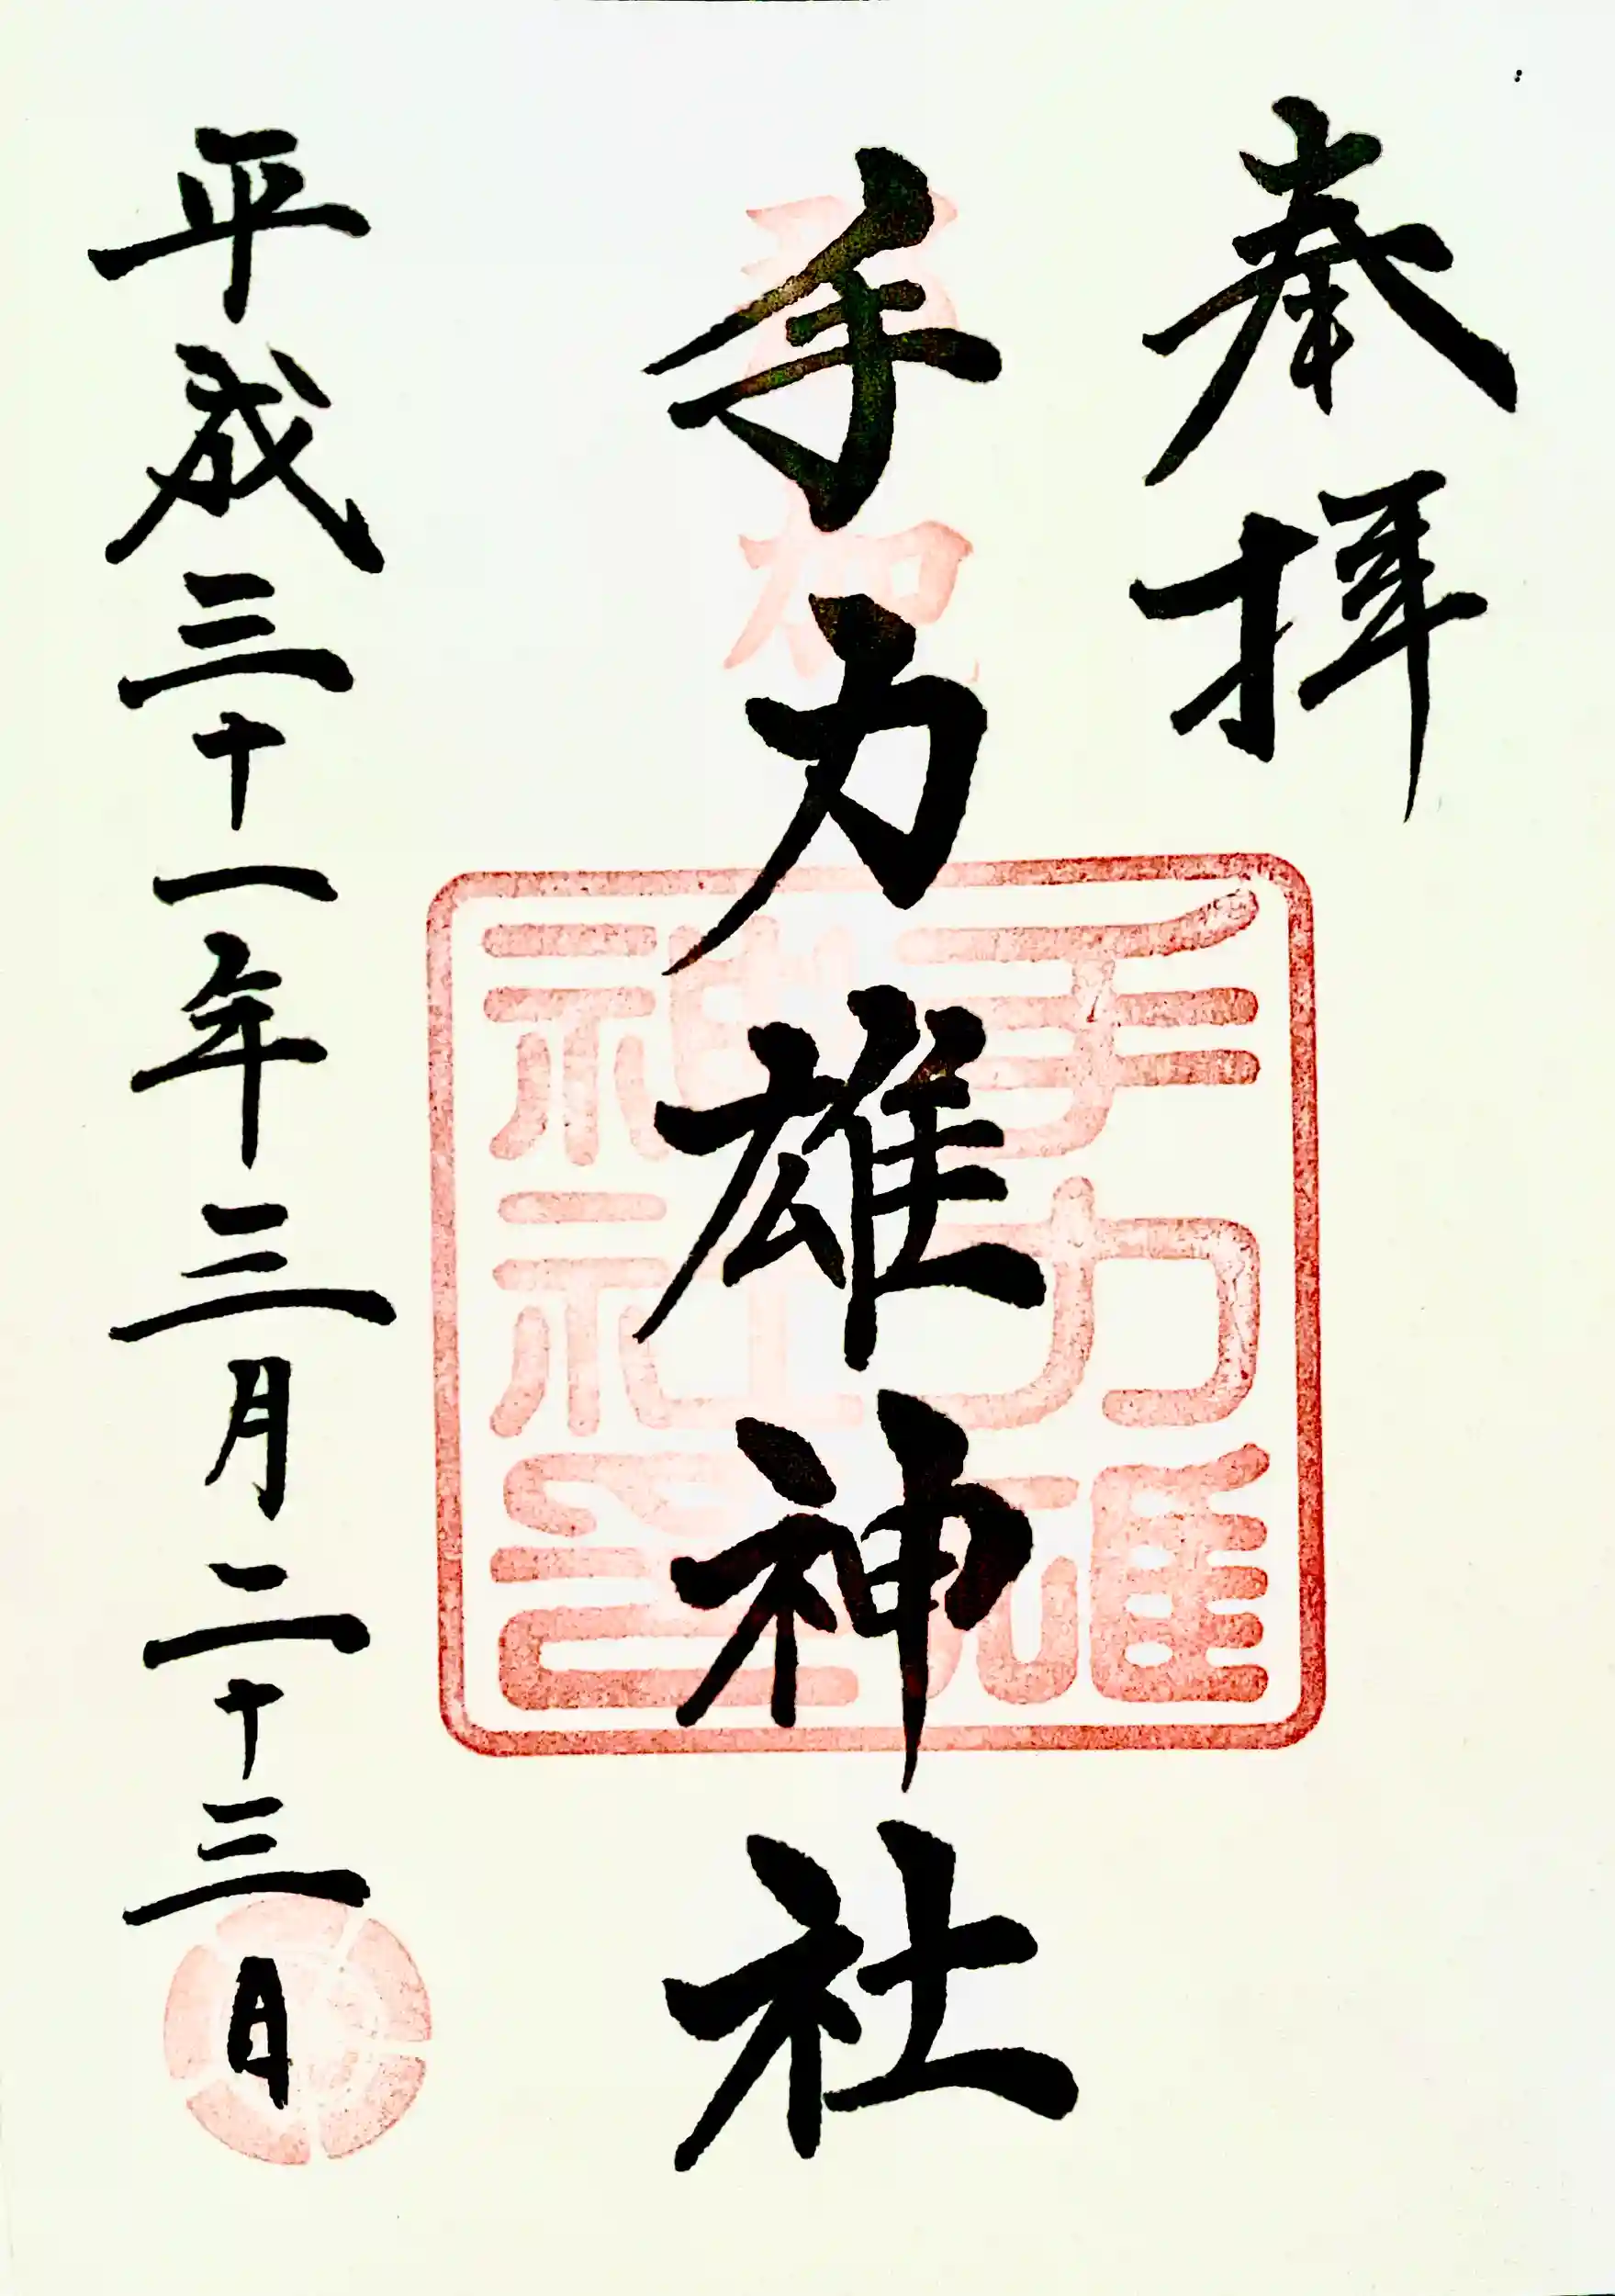 奉拝
手力雄神社
手力雄
神社之印
平成三十一年三月二十三日